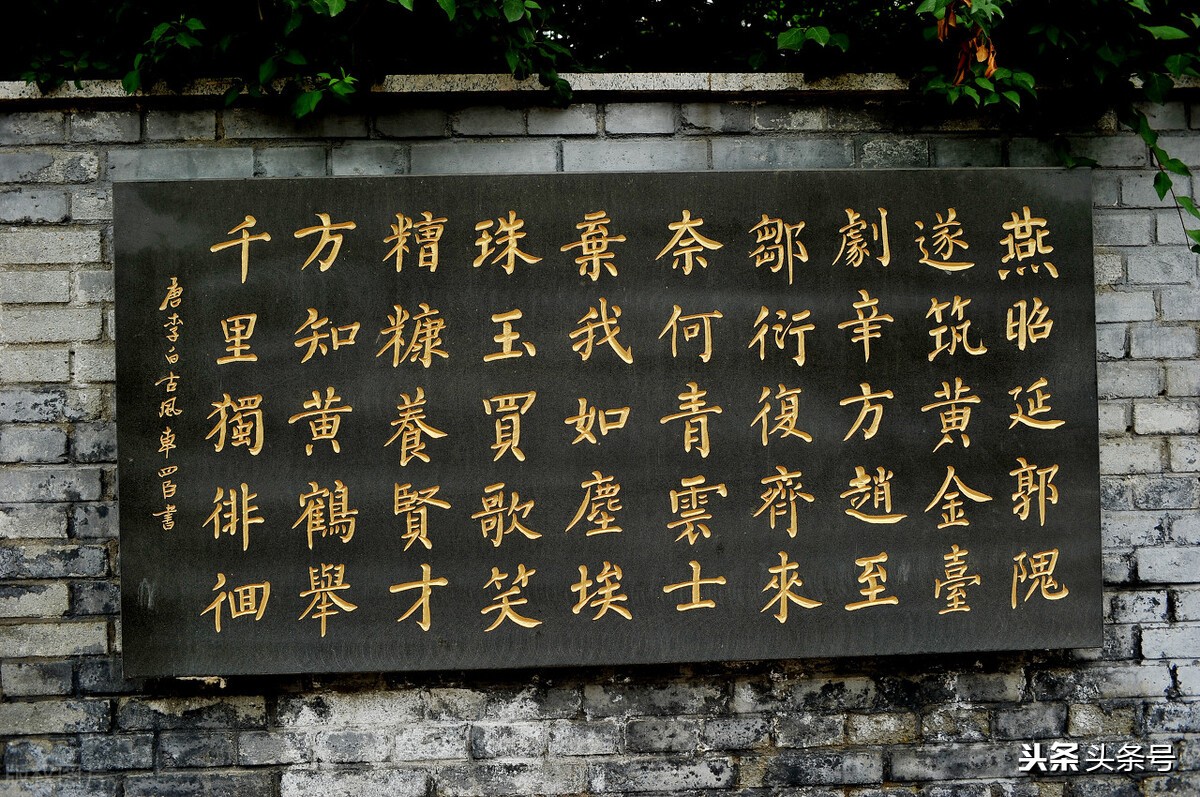 燕昭延郭隗
遂筑黄金臺
劇辛方趙至
鄒衍復齊來
奈何青雲士
棄我如塵埃
珠玉買歌笑
糟糠養賢才
方知黄鶴舉
千里獨徘徊
唐李白古風 車 書
头条 头条号